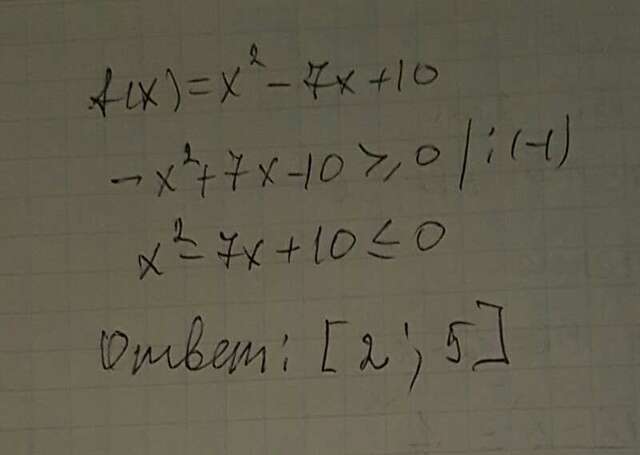 f(x)=x²-7x+10
-x²+7x-10≥0 |:(-1)
x²-7x+10≤0
Ответ: [2; 5]